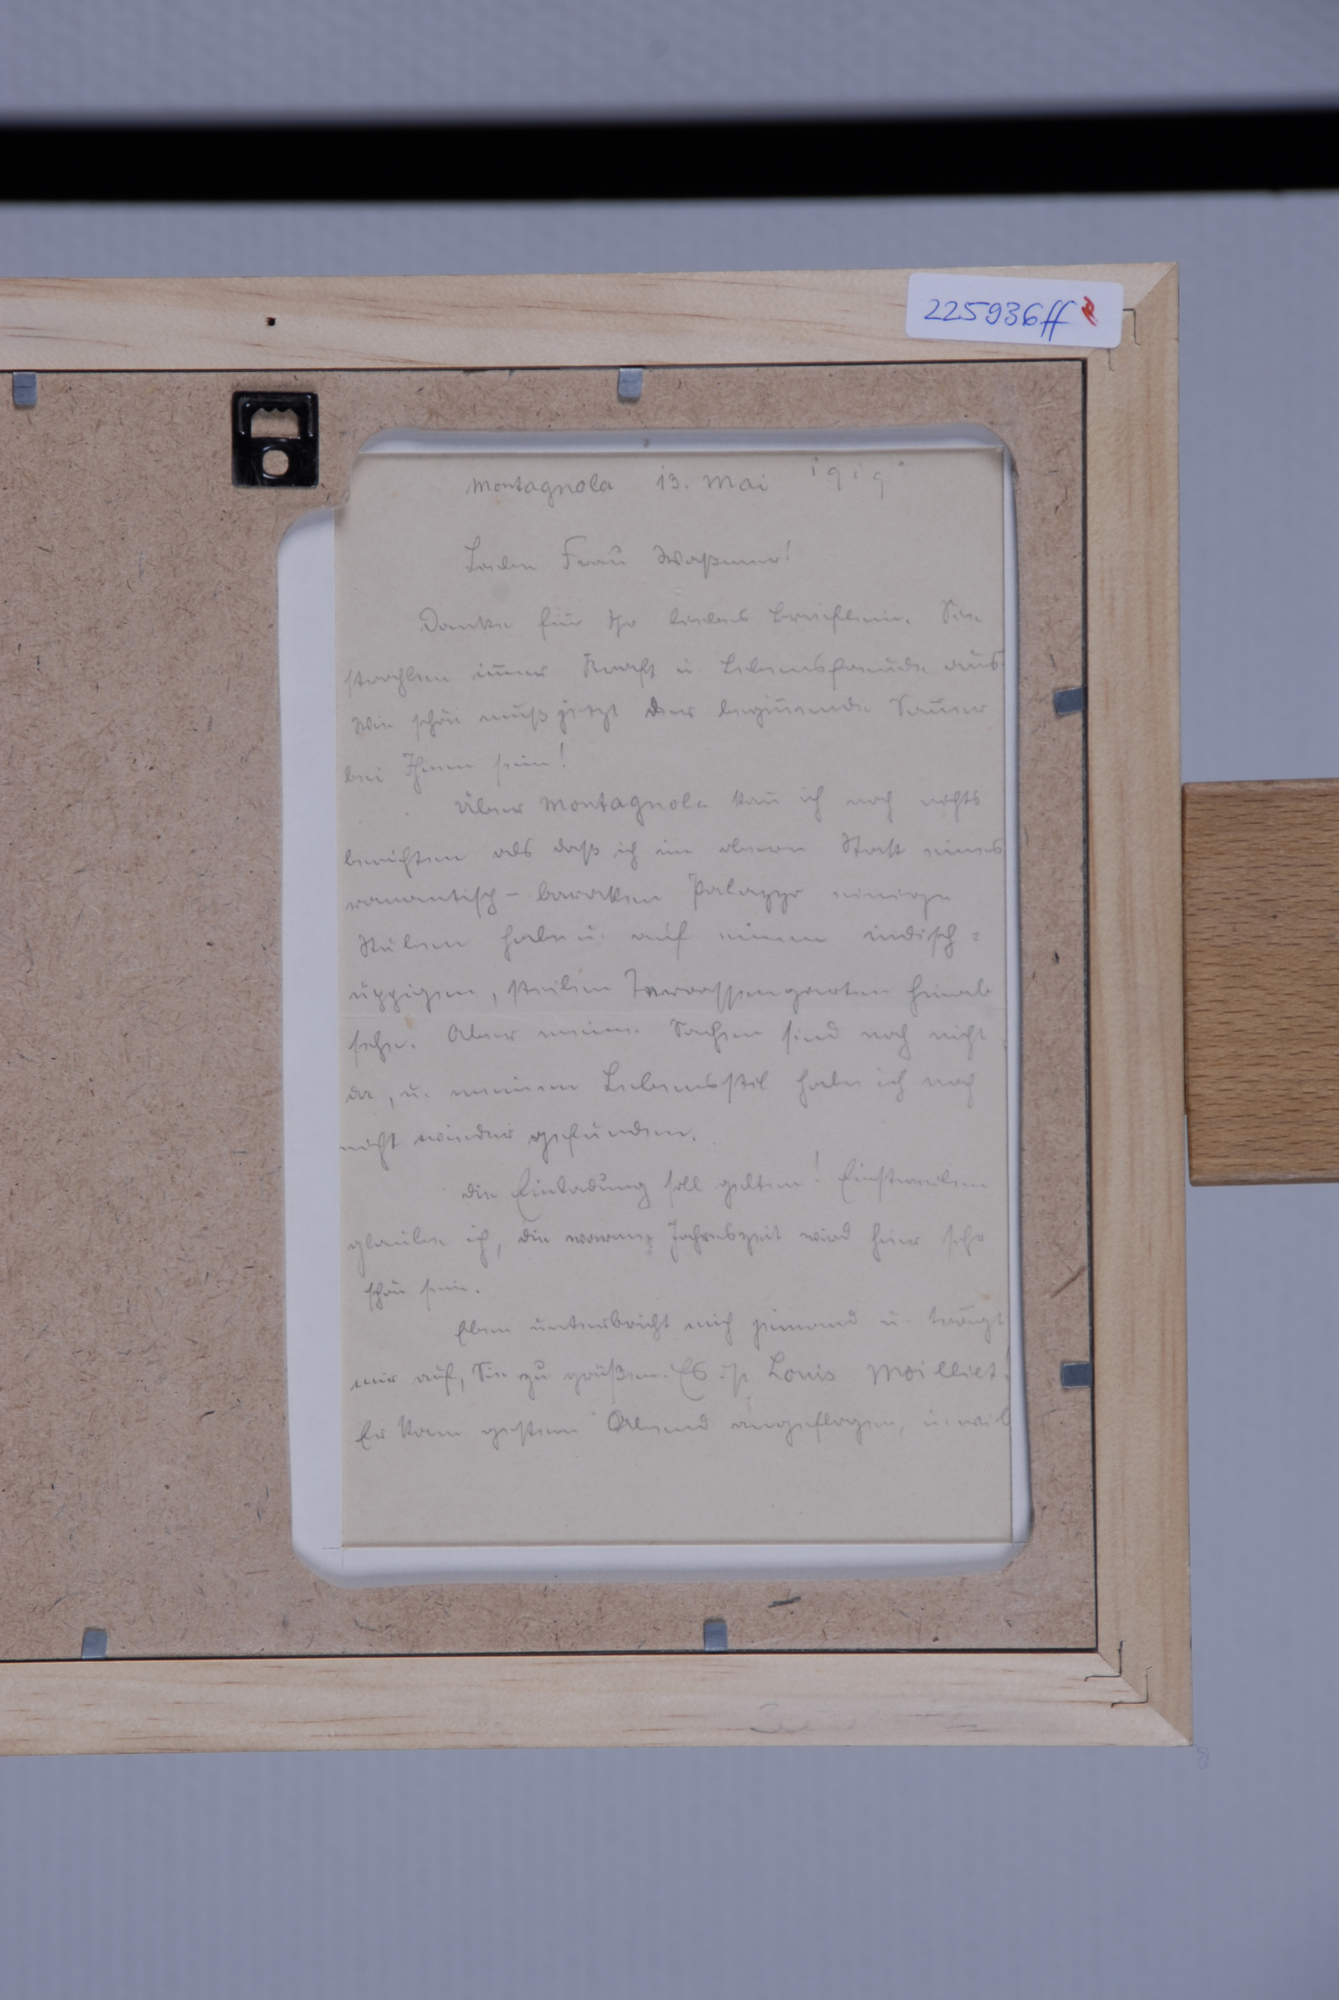 225936ff
Montagnola 13. Mai 1919
Liebe Frau Waßmer!
Danke für Ihr liebes Brieflein. Sie
strahlen im̄er Kraft u. Lebensfreude aus.
Wie schön muß jetzt der begin̄ende Som̄er
bei Ihnen sein!
Über Montagnola kan̄ ich noch nichts
berichten als daß ich im obern Stock eines
romantisch-barocken Palazzo einige
Stuben habe u. auf einen indisch=
üppigen, steilen Terrassengarten hinab
sehe. Aber meine Sachen sind noch nicht
da, u. meinen Lebensstil habe ich noch
nicht wieder gefunden.
Die Einladung soll gelten! Einstweilen
glaube ich, die warme Jahreszeit wird hier sehr
schön sein.
Eben unterbricht mich jemand u. trägt
mir auf, Sie zu grüßen. Es ist Louis Moilliet!
Er kam gestern Abend angeflogen, u. will